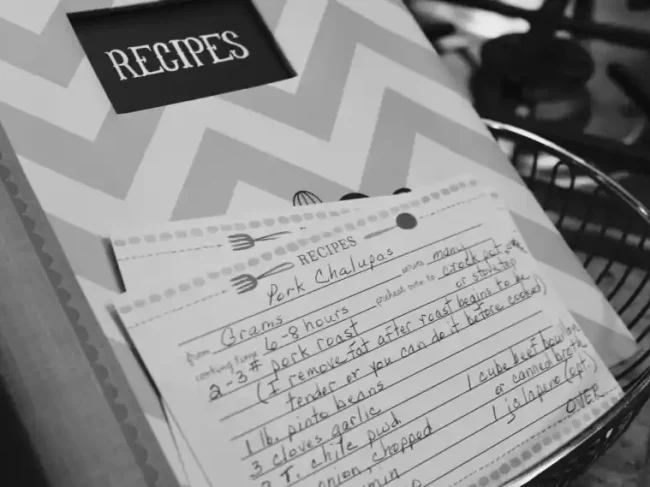 RECIPES
RECIPES
Pork Chalupas
from Grams serves many
cooking time 6-8 hours preheat oven to crock pot or stovetop
2-3# pork roast
(I remove fat after roast begins to be
tender or you can do it before cooked)
1 lb. pinto beans
3 cloves garlic 1 cube beef bouillon
2 T. chile pwd. or canned broth
onion, chopped 1 jalapeno (opt.)
OVER